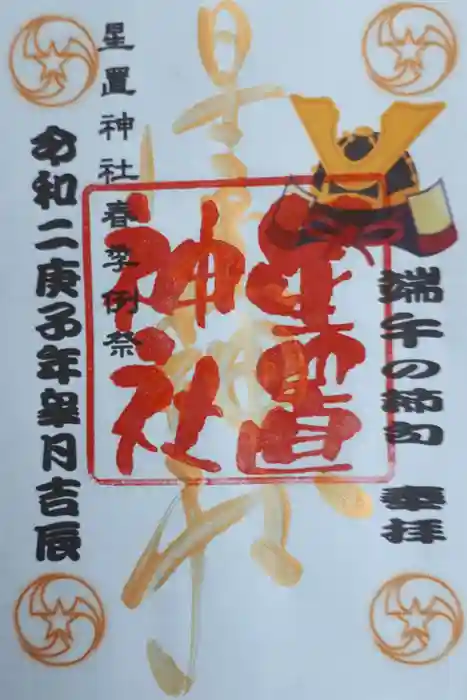 端午の節句 奉拝
星置
神社
星置神社春季例祭
令和二庚子年皐月吉辰